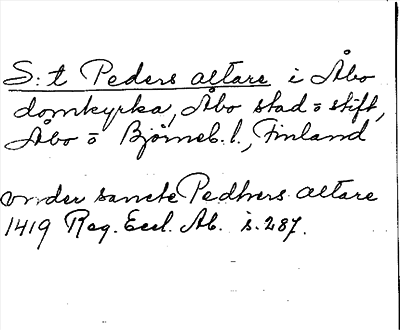 S:t Peders altare i Åbo
domkyrka, Åbo stad o stift,
Åbo o Björneb. l., Finland
vnder sancte Pedhers altare
1419 Reg. Eccl. Ab. s. 287.